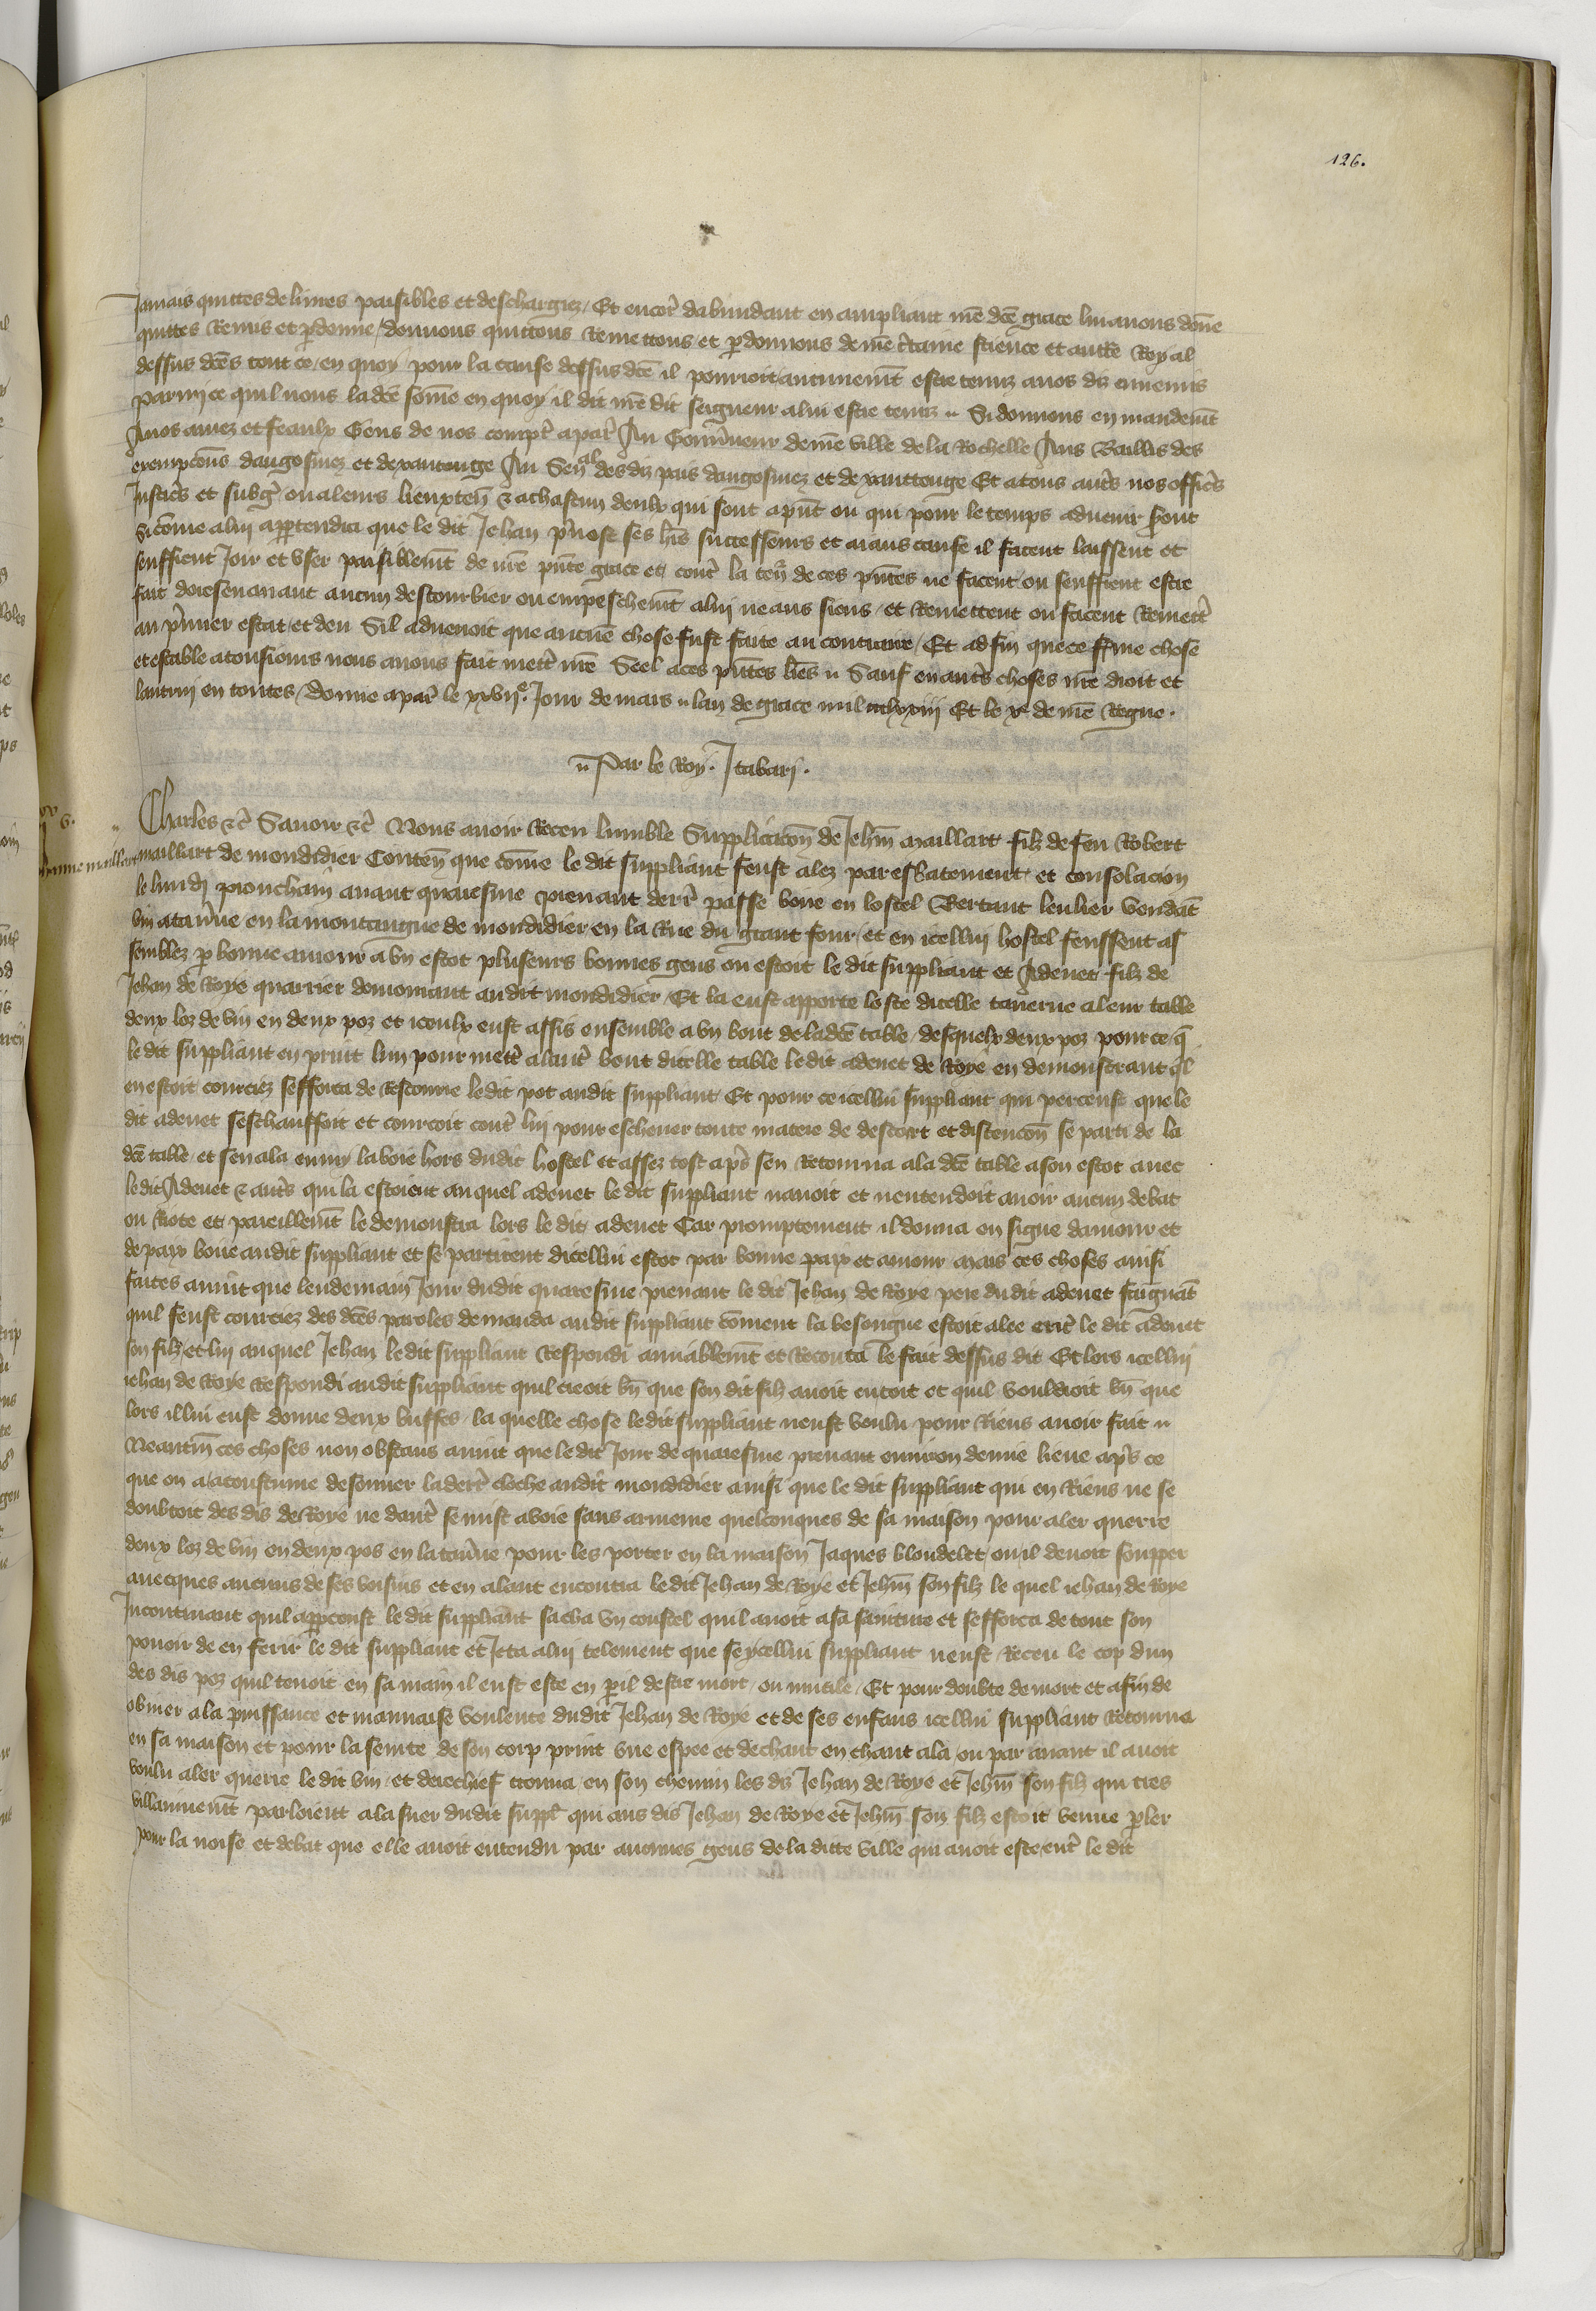 126.
Jamais quittes delivres paisibles et deschargiez / Et encor̃ dabundant en ampliant nrẽ dcẽ grace lui avons donñe
quittes Remis et ꝑdonne / donnons quittons Remettons et ꝑdonnons de nrẽ c̃taine science et auttẽ Royal
dessus dcẽs tout ce / en quoy pour la cause dessus dcẽ il pourroit aucunemẽt estre tenuz a nos diz ennemis
parmi ce quil nous ladcẽ som̃e en quoy il dit nrẽ dit seigneur a lui estre tenuz // Si donnons en mandemẽt
A nos amez et feaulx Gens de nos compt̃ a par̃ Au Gouv̾neur de nrẽ ville de la Rochelle Aus Baillis des
exempcõns dangosmez et de xantonge Au Sen̾al des diz pais dangosmez et de xanttonge Et a tous autr̃s nos offic̃s
Justic̃s et subg̃ ou a leurs lieuxten̾ & a chascun deulx qui sont a pñt ou qui pour le temps advenir s̾ont
si com̃e a lui appartendra que le dit Jehan p̾vost ses hr̃s successeurs et aians cause il facent laissent et
seuffrent Joir et user paisiblemẽt de nrẽ pñte grace et contr̃ la ten̾ de ces pñtes ne facent ou seuffrent estre
fait doresenavant aucun destourbier ou empeschemẽt a lui ne aus siens / et Remettent ou facent Remettr̃
au p̾mier estat et deu Sil advenoit que aucuñe chose fust faite au contraire / Et ad fin que ce ferme chose
et estable a tousiours nous avons fait mettr̃ nrẽ Seel a ces pñtes lrẽs // Sauf en autr̃s choses nrẽ droit et
lautrui en toutes / Donne a par̃ le xxvije. Jour de mars // lan de grace mil ccclxxiij Et le xe de nrẽ Regne.
// Par le Roy. J tabari.
Charles &c̃ Savoir &c̃ Nous avoir Receu lumble Supplicacõn de Jehñ maillart filz de feu Robert
maillart de mondidier Conteñ que com̃e le dit suppliant feust alez par esbatement et consolacion
le lundj prouchain avant quaresme prenant derr̃ passe boire en lostel Bertaut leulier vendãt
vin a tav̾ne en la montaugne de mondidier en la Rue du grant four / et en icellui hostel feussent as
semblez ꝑ bonne amour a vn escot pluseurs bonnes gens ou estoit le dit suppliant et Adenet filz de
Jehan de Roye quarrier demourant au dit mondidier / Et la eust apporte loste dicelle taverne a leur table
deux loz de vin en deux poz et iceulx eust assis ensemble a vn bout de ladcẽ table / desquelx deux poz pour ce q̃
le dit suppliant en print lun pour mettr̃ a lautr̃ bout dicelle table le dit adenet de Roye en demonstrant q̃l
en estoit courciez sefforca de Rescourre le dit pot au dit suppliant Et pour ce icellui suppliant qui perceust que le
dit adenet seschauffoit et courcoit contr̃ lui pour eschever toute matere de descort et discencõn se parti de la
dcẽ table / et sen ala enmy la voie hors du dit hostel et assez tost apr̃s sen Retourna a la dcẽ table a son escot avec
le dit Adenet & autr̃s qui la estoient au quel adenet le dit suppliant navoit et nentendoit avoir aucun debat
ou Riote et pareillemẽt le demonstra lors le dit adenet Car promptement il donna en signe damour et
de paix boire au dit suppliant et se partirent dicellui escot par bonne paix et amour mais ces choses ainsi
faites avint que lendemain Jour du dit quaresme prenant le dit Jehan de Roye pere du dit adenet faignãt
quil feust courciez des dcẽs paroles demanda au dit suppliant com̃ent la besongne estoit alee entr̃ le dit adenet
son filz et lui au quel Jehan le dit suppliant Respondi amiablemẽt et Reconta le fait dessus dit Et lors icellui
jehan de Roye Respondi au dit suppliant quil creoit bñ que son dit filz avoit entoit et quil vouldroit bñ que
lors il lui eust donne deux buffes / la quelle chose le dit suppliant neust voulu pour Riens avoir fait //
Neantm̃ ces choses non obstans avint que le dit Jour de quaresme prenant environ demie lieue apr̃s ce
que on a acoustume de sonner la derr̃ cloche au dit mondidier ainsi que le dit suppliant qui en Riens ne se
doubtoit des dis de Roye ne dautr̃ se mist a voie sans armeure quelconques de sa maison pour aler querre
deux loz de vin en deux pos en la tav̾ne pour les porter en la maison Jaques blondelet ou il devoit soupper
avecques aucuns de ses voisins et en alant encontra le dit Jehan de Roye et Jehñ son filz le quel jehan de Roye
Incontinant quil apperceust le dit suppliant sacha vn coustel quil avoit a sa sainture et sefforca de tout son
povoir de en ferir le dit suppliant et Jetta a lui telement que se ycellui suppliant neust Receu le cop dun
des dis poz quil tenoit en sa main il eust este en ꝑil destre mort / ou mutile / Et pour doubte de mort et afin de
obvier a la puissance et mauvaise voulente du dit Jehan de Roye et de ses enfans icellui suppliant Retourna
en sa maison et pour la seurte de son corp print une espee et de chaut en chaut ala / ou par avant il avoit
voulu aler querre le dit vin / et derechief trouva en son chemin les diz Jehan de Roye et Jehñ son filz qui tres
villainnemẽt parloient a la suer du dit supplt̃ qui aus dis Jehan de Roye et Jehñ son filz estoit venue ꝑler
pour la noise et debat que elle avoit entendu par aucunes gens de la ditte ville qui avoit este entr̃ le dit